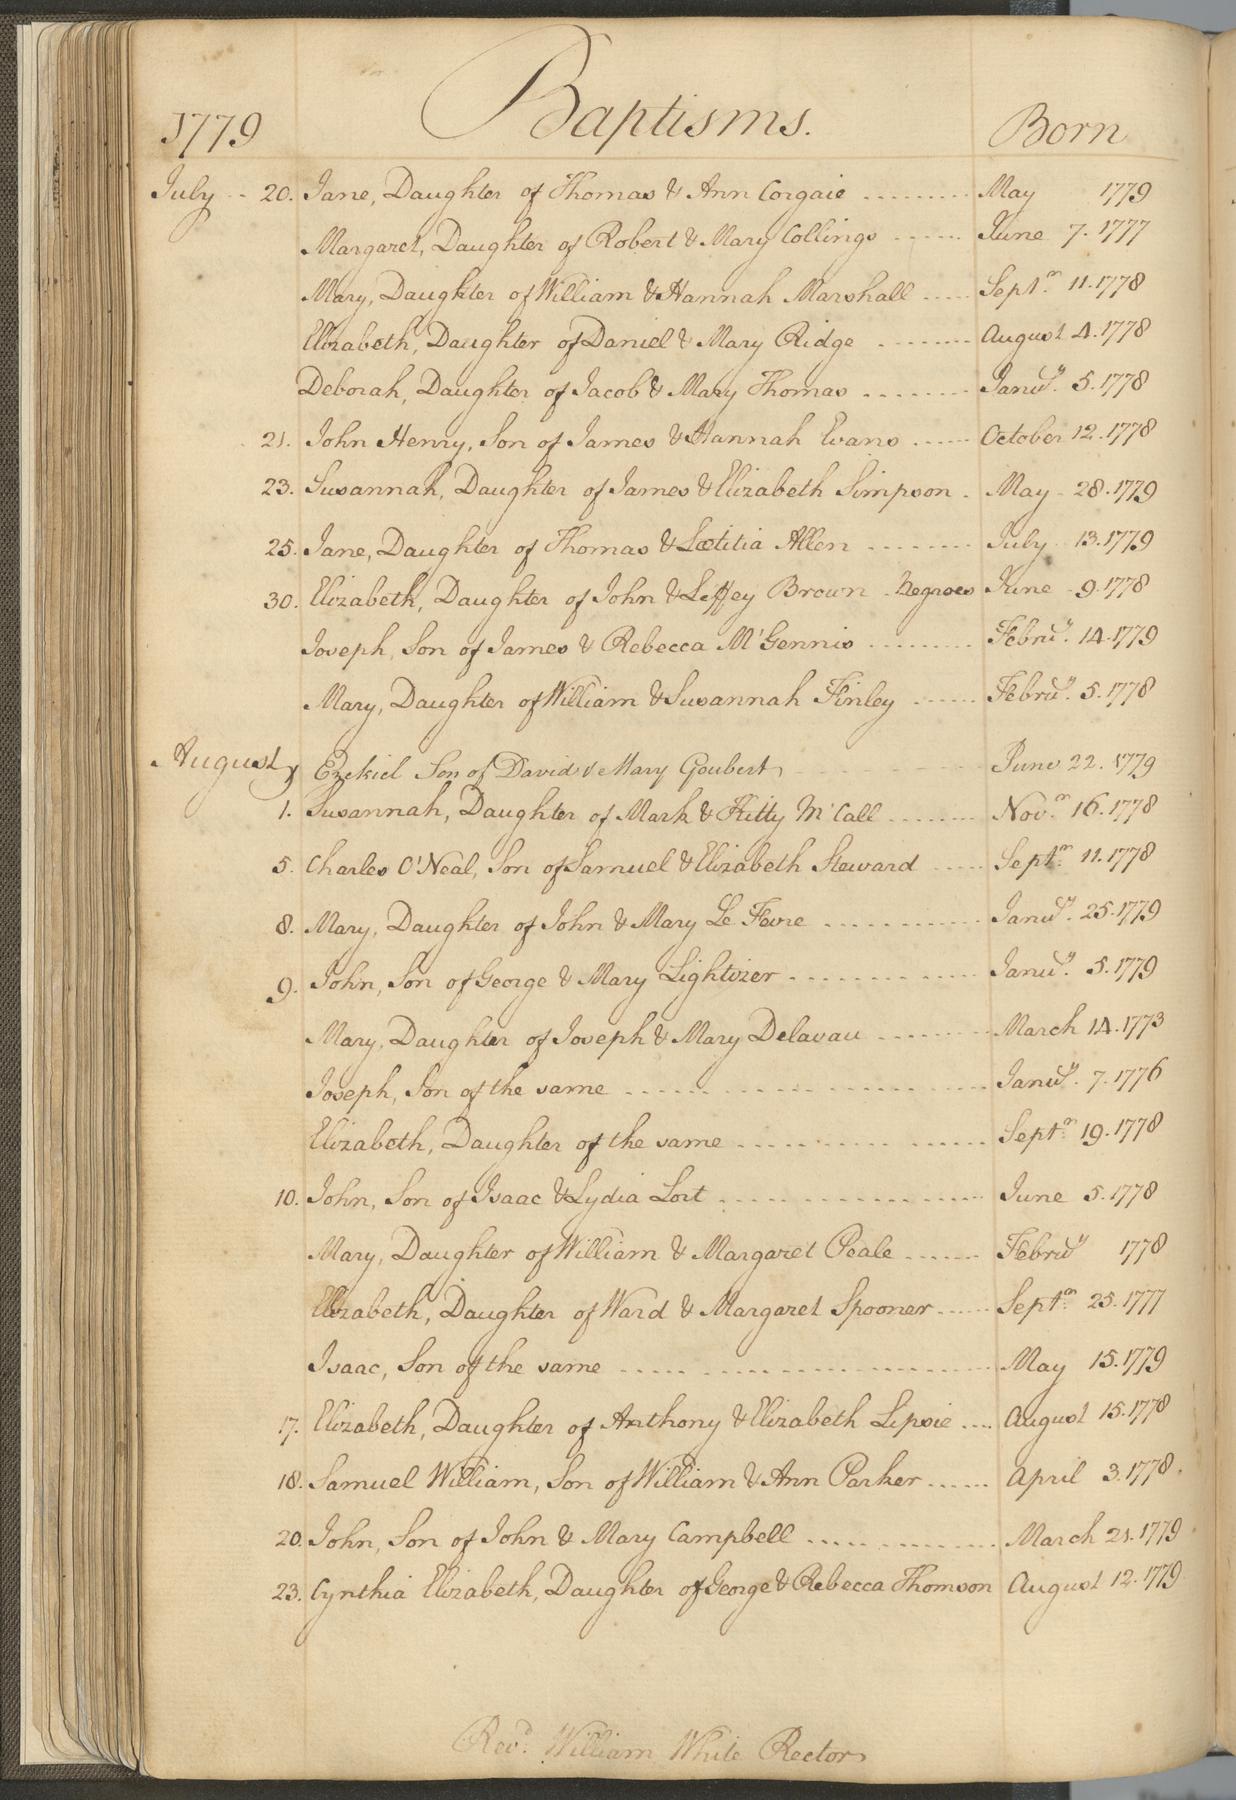 1779 Baptisms. Born
July -- 20. Jane, Daughter of Thomas & Ann Corgaie --------- May 1779
Margaret, Daughter of Robert & Mary Collings ------ June 7. 1777
Mary, Daughter of William & Hannah Marshall ----- Septr. 11. 1778
Elizabeth, Daughter of Daniel & Mary Ridge -------- August 4. 1778
Deborah, Daughter of Jacob & Mary Thomas -------- Janu'y. 5. 1778
21. John Henry, Son of James & Hannah Evans ------ October 12. 1778
23. Susannah, Daughter of James & Elizabeth Simpson - May - 28. 1779
25. Jane, Daughter of Thomas & Lætitia Allen -------- July 13. 1779
30. Elizabeth, Daughter of John & Leffey Brown - Negroes June - 9. 1778
Joseph, Son of James & Rebecca M'Gennis --------- Febru'y. 14. 1779
Mary, Daughter of William & Susannah Finley ------ Febru'y. 5. 1778
August Ezekiel Son of David & Mary Goubert June 22. 1779
1. Susannah, Daughter of Mark & Kitty M'Call ------- Novr. 16. 1778
5. Charles O'Neal, Son of Samuel & Elizabeth Steward ----- Septr. 11. 1778
8. Mary, Daughter of John & Mary Le Fevre ----------- Janu'y. 25. 1779
9. John, Son of George & Mary Lightvizer ------------- Janu'y. 5. 1779
Mary, Daughter of Joseph & Mary Delavau -------- March 14. 1773
Joseph, Son of the same ------------------------- Janu'y. 7. 1776
Elizabeth, Daughter of the same ----------------- Septr. 19. 1778
10. John, Son of Isaac & Lydia Lort ------------------ June 5. 1778
Mary, Daughter of William & Margaret Peale ------ Febru'y 1778
Elizabeth, Daughter of Ward & Margaret Spooner ----- Septr. 25. 1777
Isaac, Son of the same ------------------------- May 15. 1779
17. Elizabeth, Daughter of Anthony & Elizabeth Lipsie ---- August 15. 1778
18. Samuel William, Son of William & Ann Parker ------ April 3. 1778.
20. John, Son of John & Mary Campbell ------------- March 21. 1779
23. Cynthia Elizabeth, Daughter of George & Rebecca Thomson August 12. 1779
Revd. William White Rector